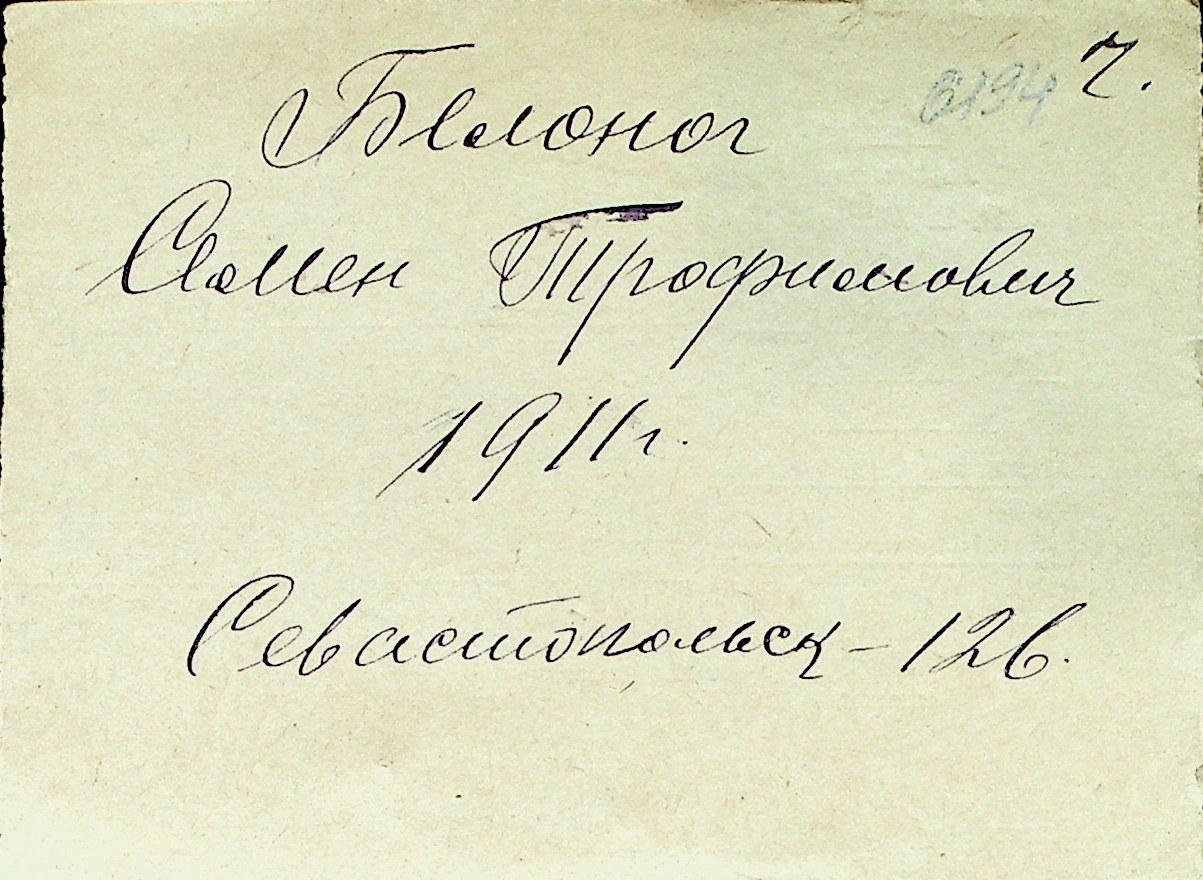 6194 ч.
Белоног
Семен Трофимович
1911г.
Севастопольск - 126.